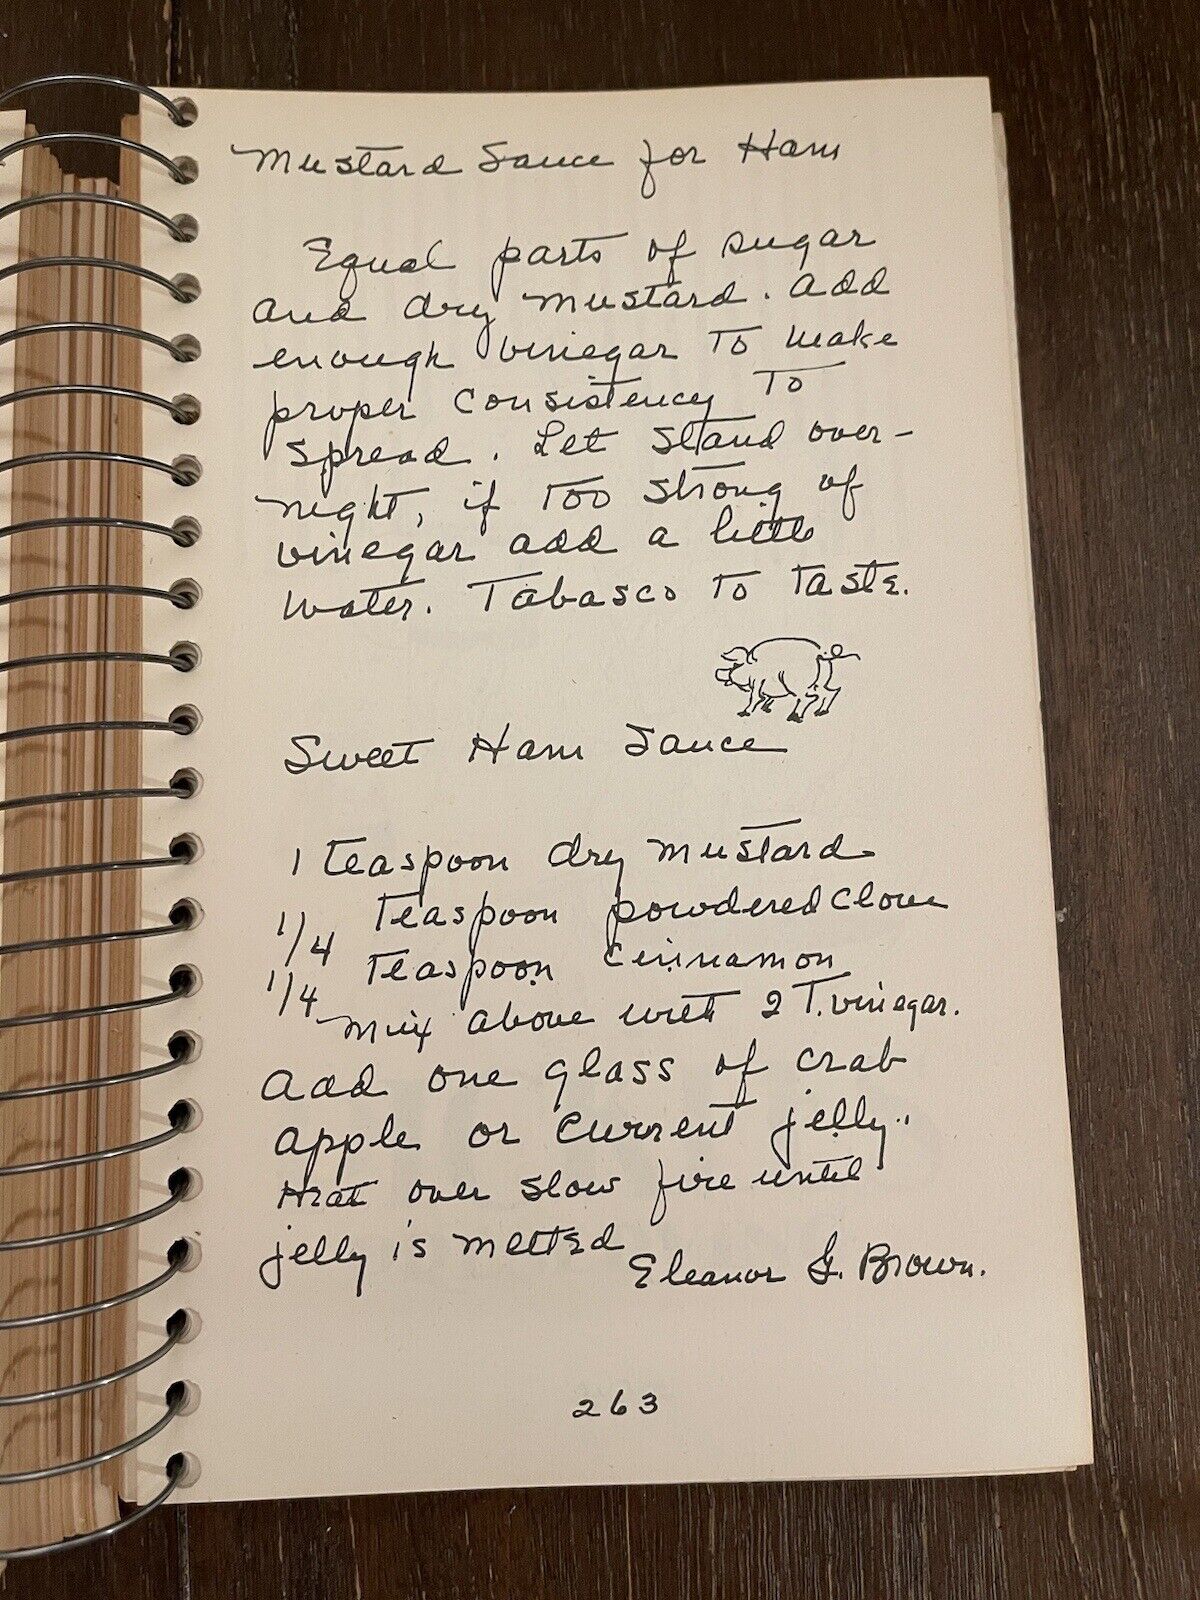 Mustard Sauce for Ham
Equal parts of sugar
and dry mustard. Add
enough vinegar to make
proper consistency to
spread. Let stand over-
night, if too strong of
vinegar add a little
water. Tabasco to taste.
Sweet Ham Sauce
1 teaspoon dry mustard
1/4 teaspoon powdered clove
1/4 teaspoon cinnamon
Mix above with 2 T. vinegar.
Add one glass of crab
apple or current jelly.
Heat over slow fire until
jelly is melted
Eleanor G. Brown.
263